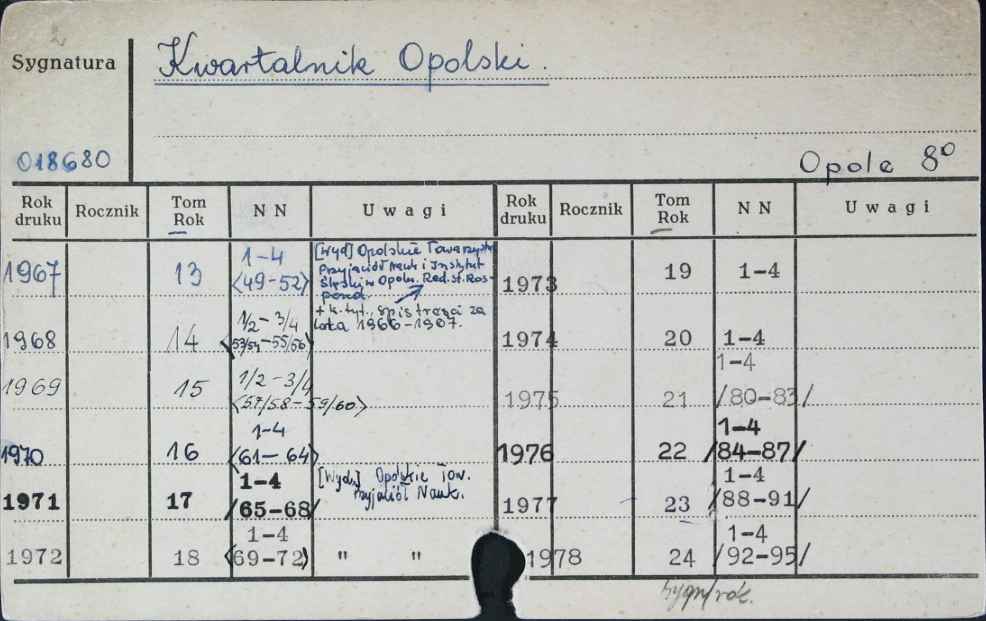 Sygnatura
Kwartalnik Opolski.
018680
Opole 8°
Rok druku Rocznik Tom Rok NN Uwagi Rok druku Rocznik Tom Rok NN Uwagi
1967 13 1-4 <49-52>
[Wyd] Opolskie Towarzystw
Przyjaciół Nauk i Instytut
Śląski w Opolu. Red. St. Ros-
pond.
+ k. tyt., spis treści za
lata 1966-1967.
1968 14 1/2-3/4 <53/54-55/56>
1969 15 1/2-3/4 <57/58-59/60>
1970 16 1-4 <61-64>
1971 17 1-4 /65-68/
[Wyd.] Opolskie Tow.
Przyjaciół Nauk.
1972 18 1-4 <69-72> " "
1973 19 1-4
1974 20 1-4
1975 21 1-4 /80-83/
1976 22 1-4 /84-87/
1977 23 1-4 /88-91/
1978 24 1-4 /92-95/
sygn/rok.